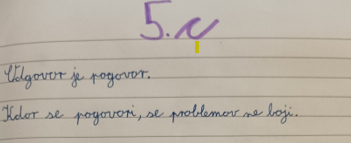 5. r
Odgovor je pogovor.
Kdor se pogovori, se problemov ne boji.